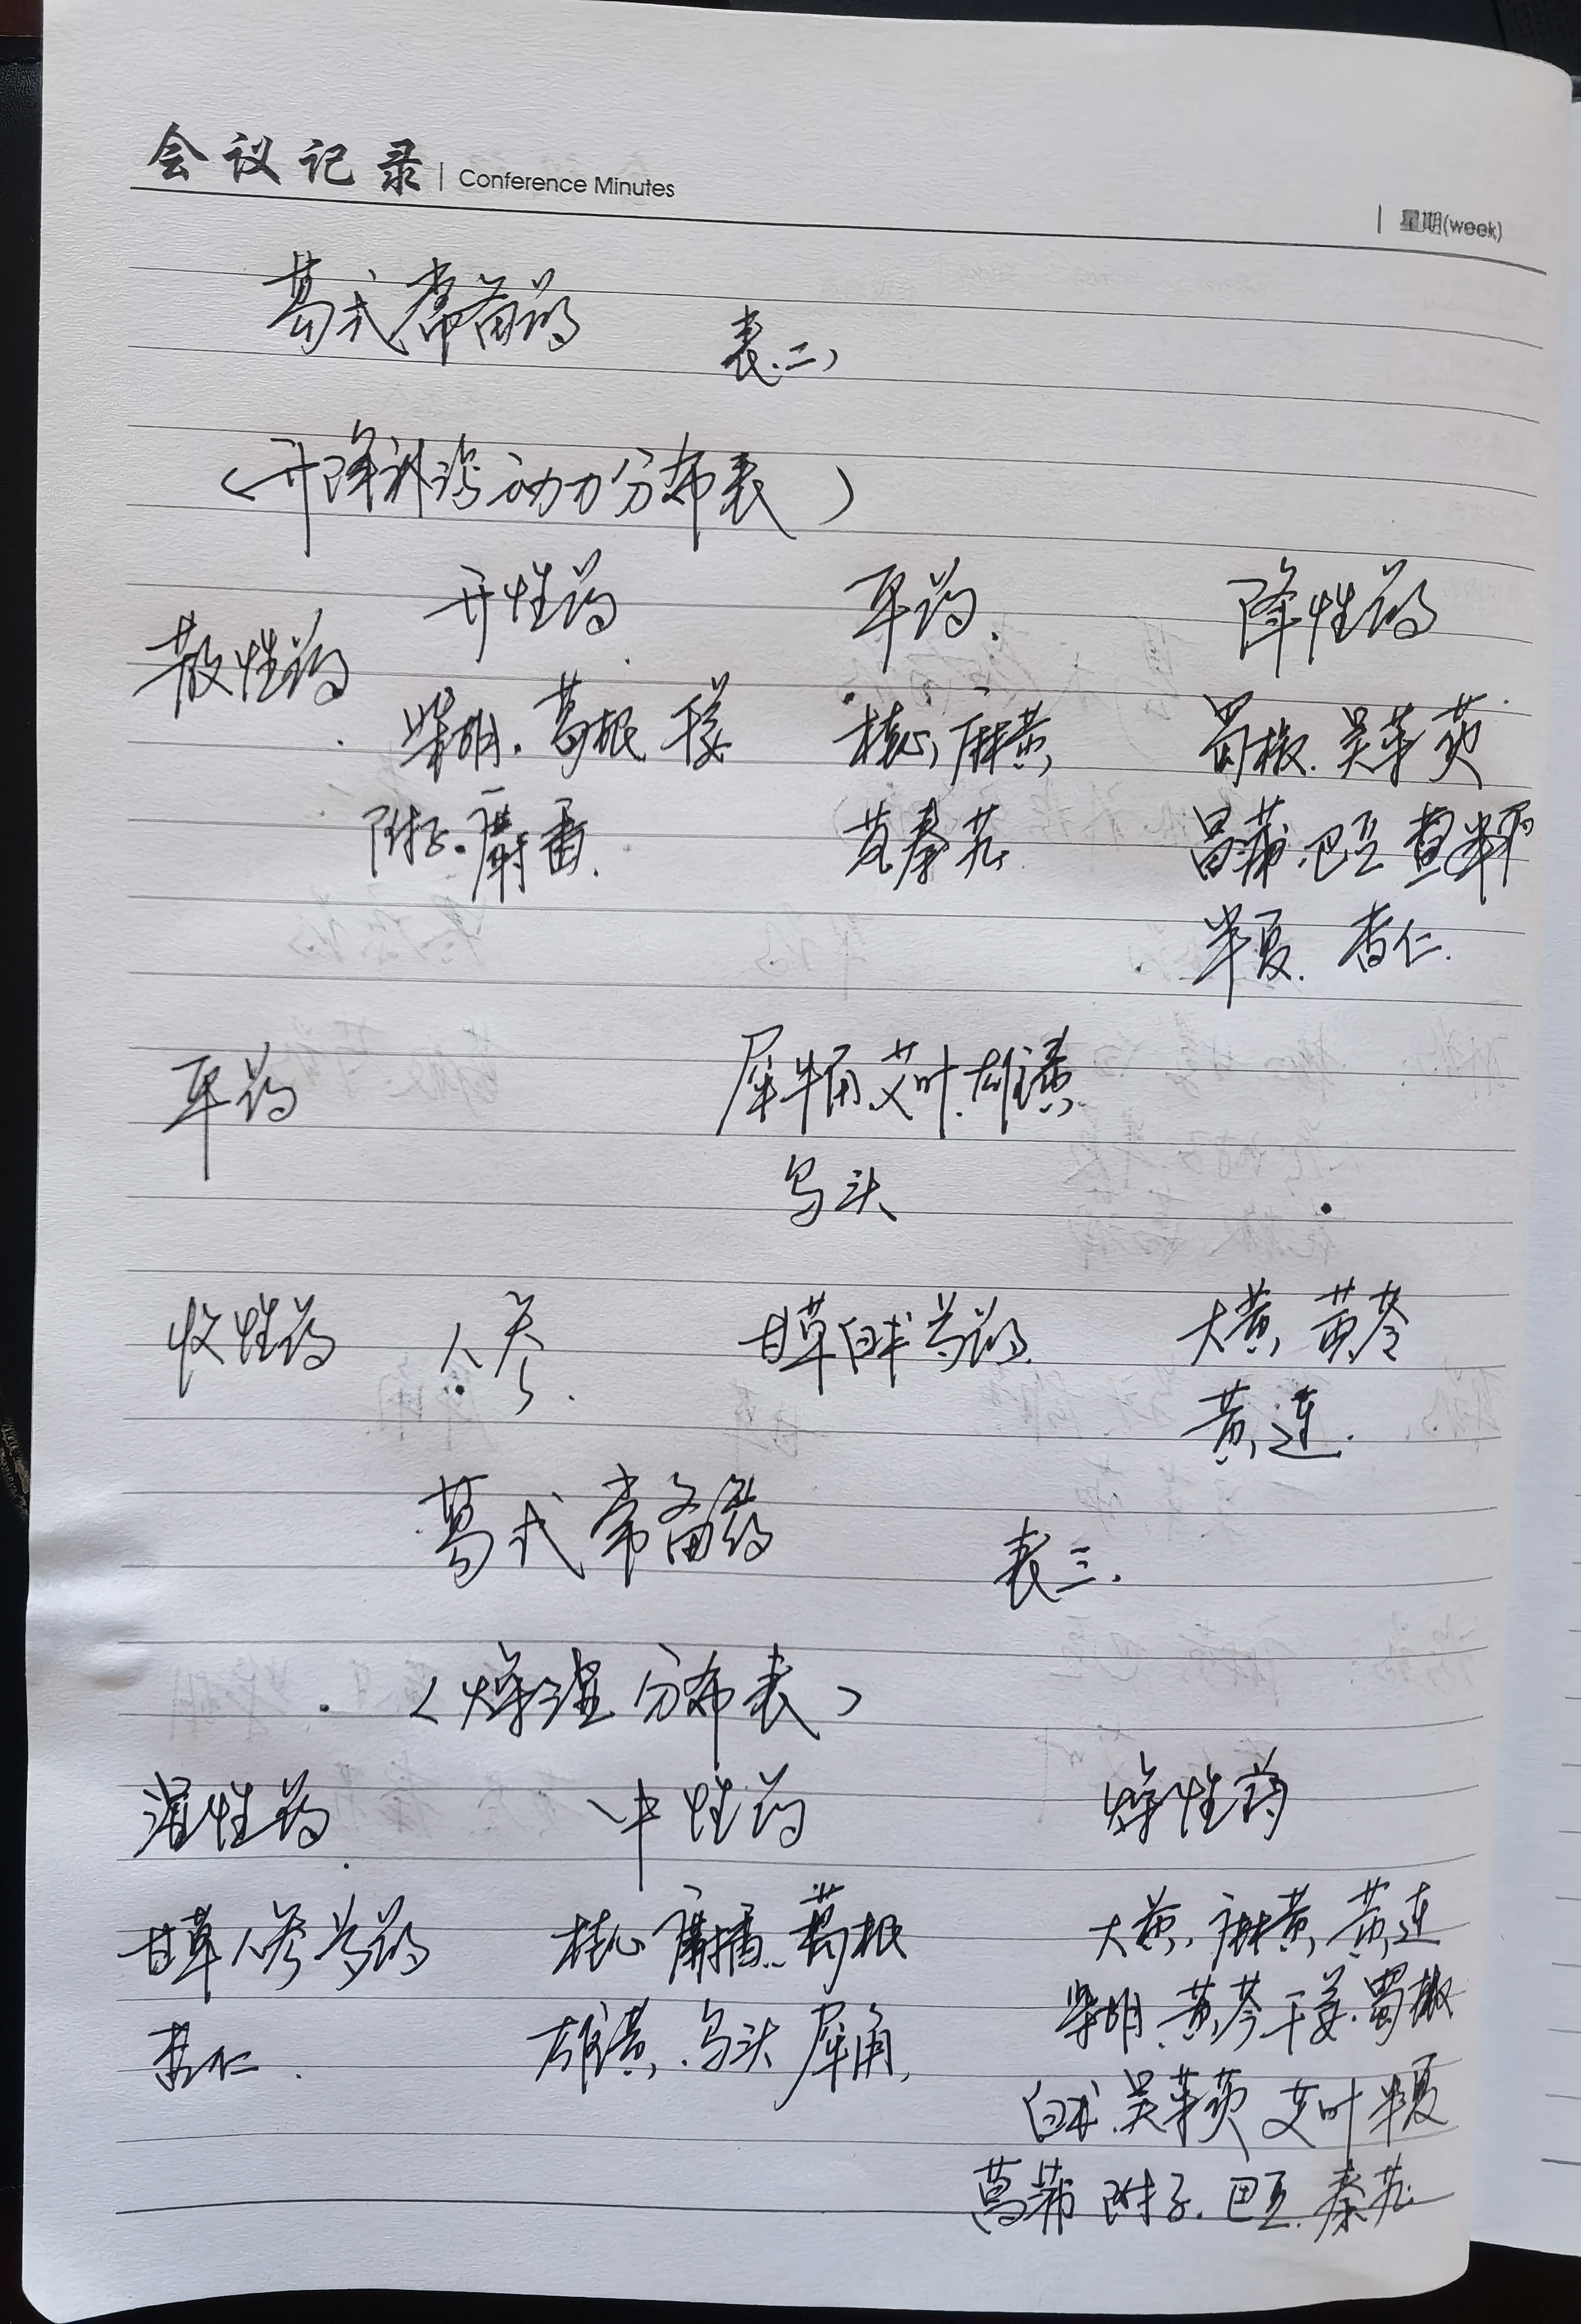 会议记录 | Conference Minutes
| 星期(week)
葛式常备药 表二
(升降 动力分布表)
升性药 平药 降性药
散性药
柴胡. 葛根 干姜 桂心, 麻黄, 蜀椒. 吴茱萸
附子. 麝香. 秦艽 菖蒲. 巴豆
半夏. 杏仁.
平药 犀牛角 艾叶. 雄黄
乌头
收性药 人参. 甘草 白术 芍药. 大黄, 黄芩
黄连.
葛式常备药 表三.
(燥湿分布表)
湿性药 中性药 燥性药
甘草 人参 芍药 桂心 麝香. 葛根 大黄, 麻黄, 黄连
杏仁. 雄黄, 乌头 犀角, 柴胡. 黄芩 干姜. 蜀椒
白术. 吴茱萸 艾叶 半夏
菖蒲 附子. 巴豆. 秦艽